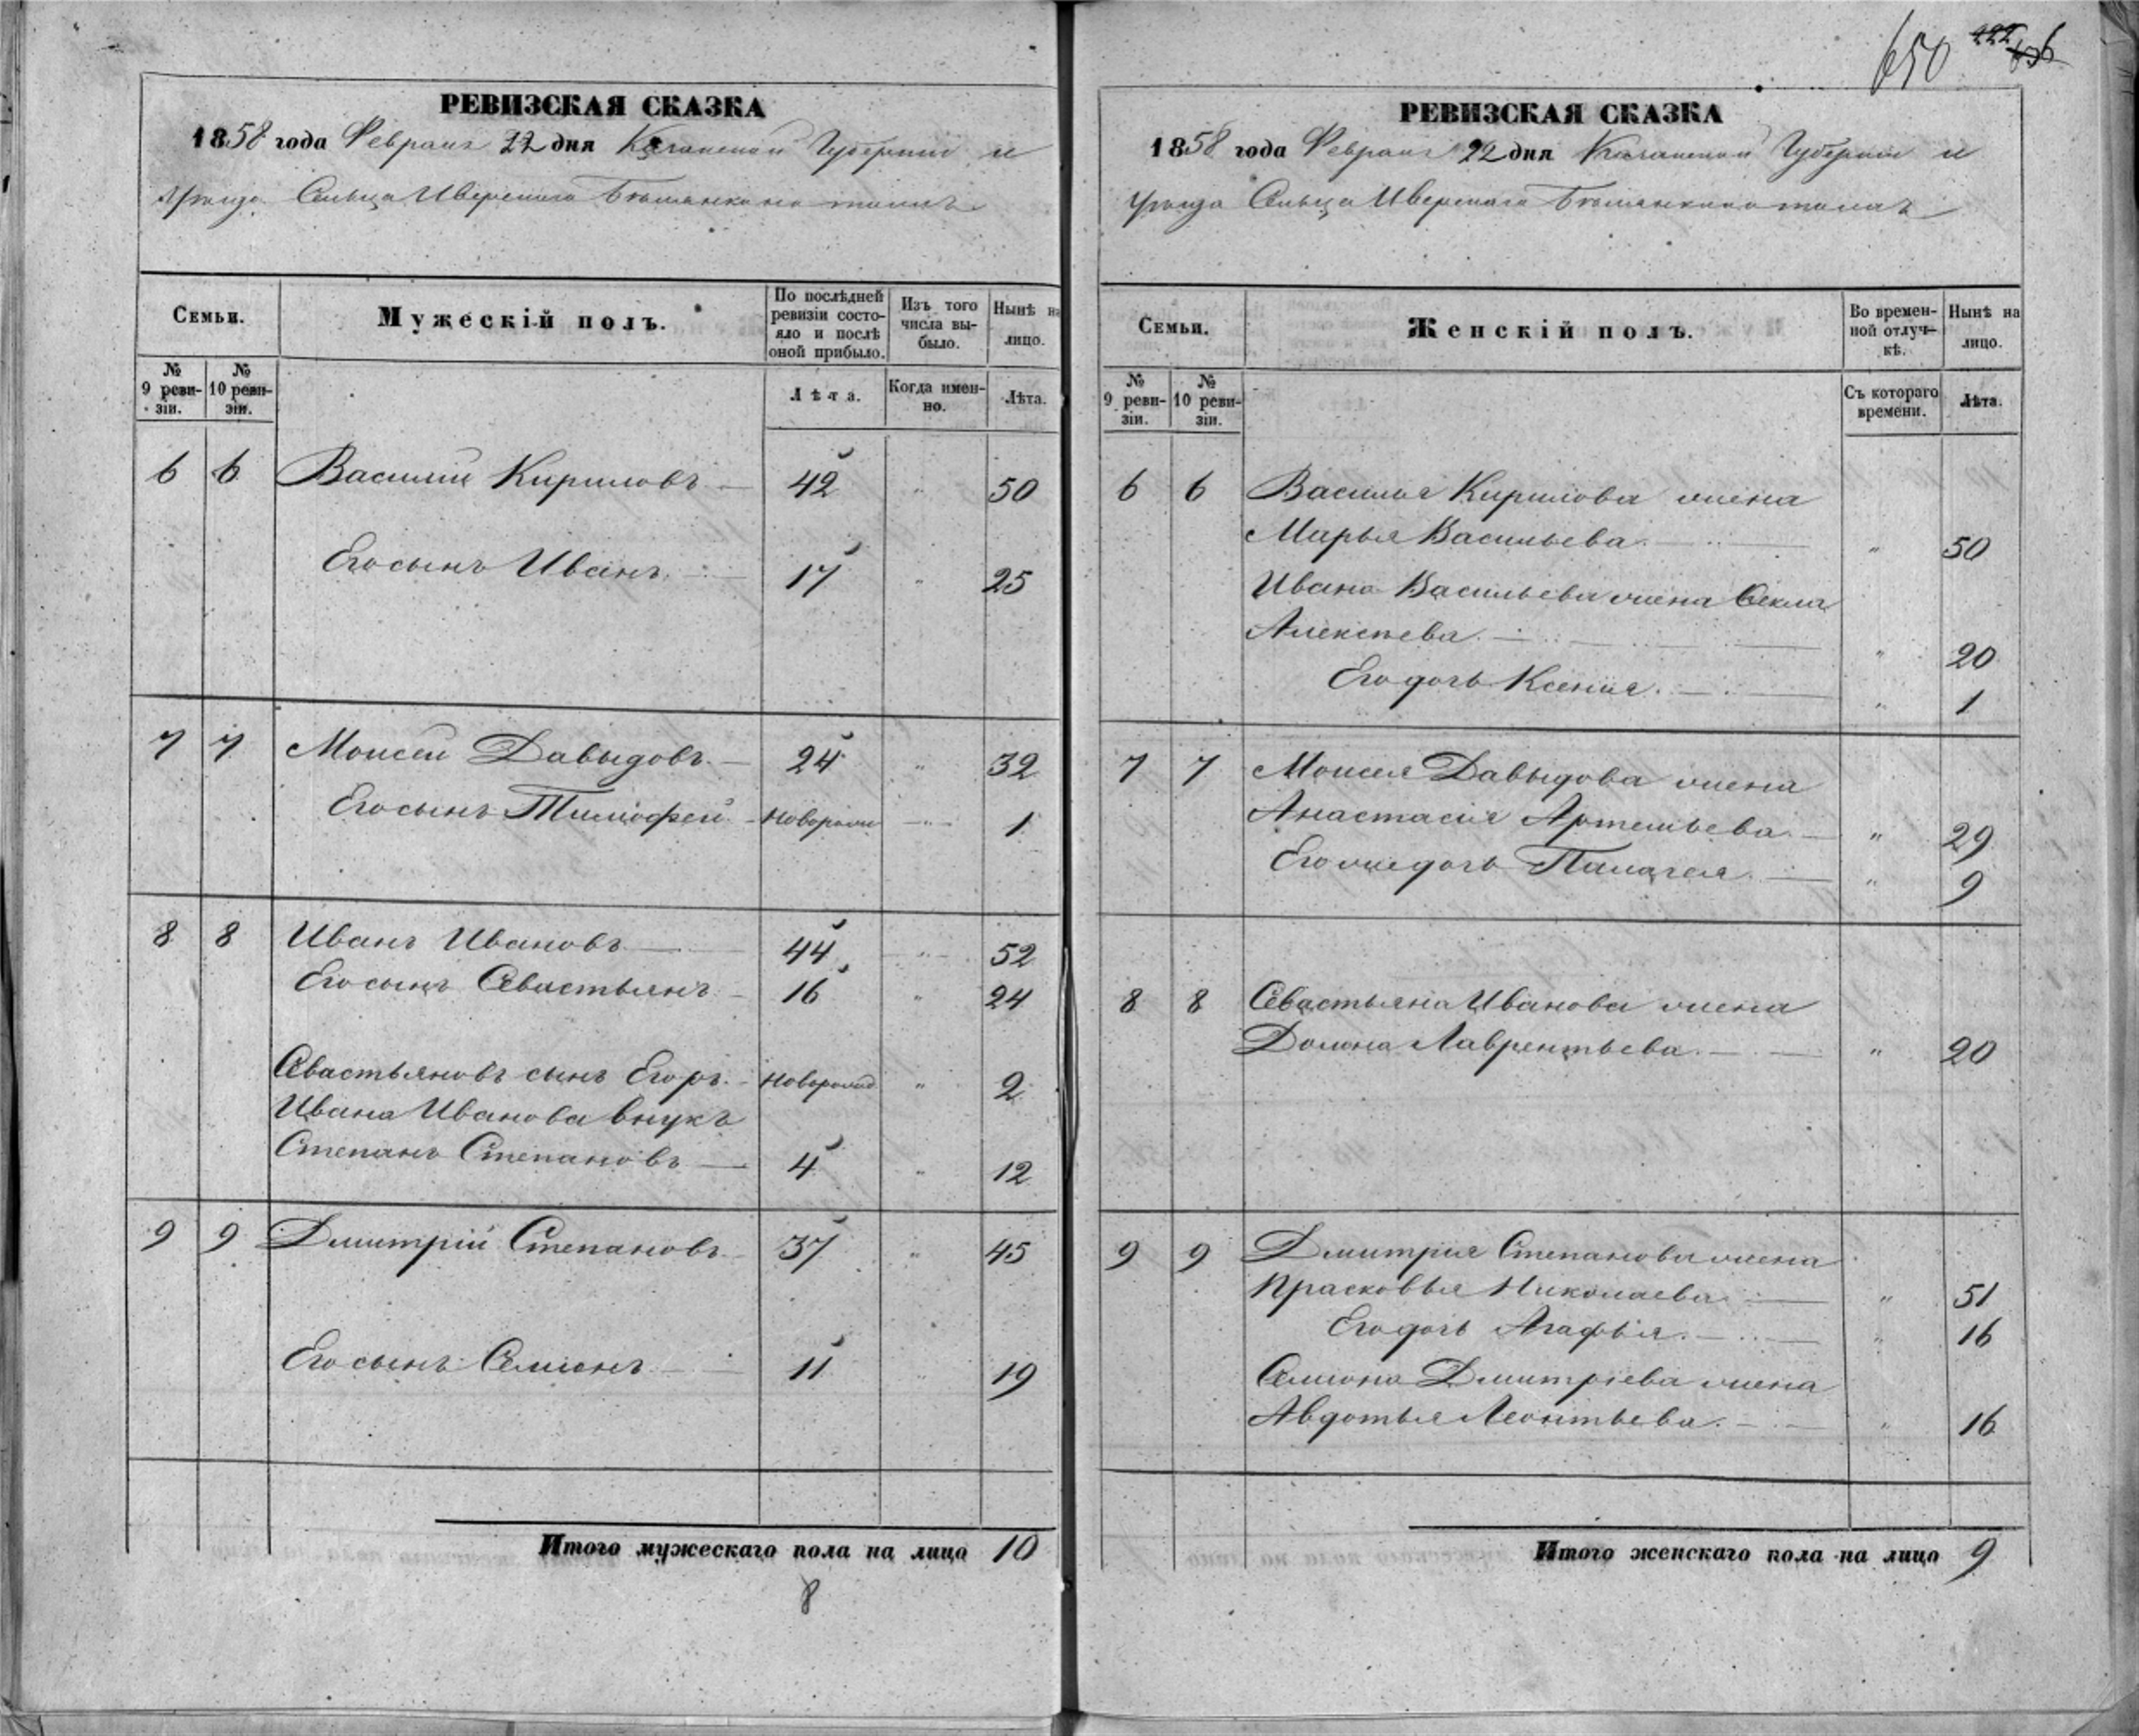 650 222 636
РЕВИЗСКАЯ СКАЗКА
1858 года Февраля 22 дня Казанской Губернии и
Уѣзда Сельца Иверскаго
Семьи.
Мужескій полъ.
По послѣдней
ревизіи состо-
яло и послѣ
оной прибыло.
Изъ того
числа вы-
было.
Нынѣ на
лицо.
№
9 реви-
зіи.
№
10 реви-
зіи.
Лѣта.
Когда имен-
но.
Лѣта.
6 6 Василій Кириловъ — 42 " 50
Его сынъ Иванъ. — 17 " 25
7 7 Моисей Давыдовъ. — 24 " 32
Его сынъ Тимофей —Новорожд " 1
8 8 Иванъ Ивановъ — 44 " 52
Его сынъ Севастьянъ. — 16 " 24
Севастьяновъ сынъ Егоръ. — Новорожд " 2
Ивана Иванова внукъ
Степанъ Степановъ — 4 " 12
9 9 Дмитрій Степановъ 37 " 45
Его сынъ Семіонъ — 11 " 19
Итого мужескаго пола на лицо 10
8
РЕВИЗСКАЯ СКАЗКА
1858 года Февраля 22 дня Казанской Губерніи и
Уѣзда Сельца Иверскаго
Семьи.
Женскій полъ.
Во времен-
ной отлуч-
кѣ.
Нынѣ на
лицо.
№
9 реви-
зіи.
№
10 реви-
зіи.
Съ котораго
времени.
Лѣта.
6 6 Василья Кирилова жена
Марья Васильева. — " 50
Ивана Васильева жена Ѳекла
Алексѣева. — " 20
Его дочь Ксенія. — " 1
7 7 Моисея Давыдова жена
Анастасія Артемьева. — " 29
Его же дочь Палагея. — " 9
8 8 Севастьяна Иванова жена
Домна Лаврентьева. — " 20
9 9 Дмитрія Степанова жена
Прасковья Николаева — " 51
Его дочь Агафья. — " 16
Семіона Дмитріева жена
Авдотья Леонтьева. — " 16
Итого женскаго пола на лицо 9